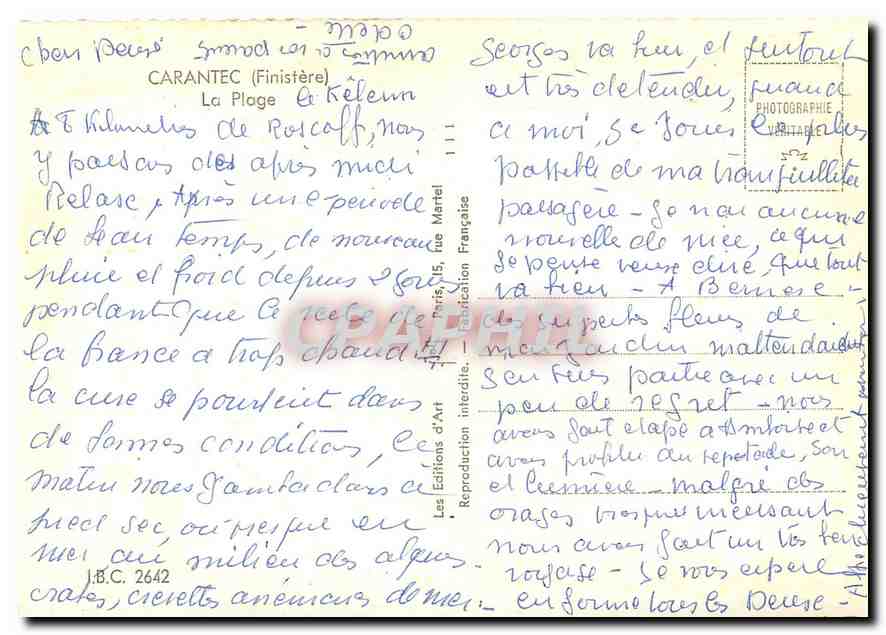 CARANTEC (Finistère)
La Plage
A 8 Kilomètres de Roscoff, nous
y passons des après midi
Relaxe, Après une période
de beau temps, de nouveau
pluie et froid depuis 2 jours
pendant que le reste de
la France a trop chaud !!!
la cure se poursuit dans
de bonnes conditions, le
matin nous
pied sec, ou presque en
mer au milieu des algues
crabes, crevettes anémones de mer -
J.B.C. 2642
Les Editions d'Art Paris, 15, rue Martel
Reproduction interdite. - Fabrication Française
PHOTOGRAPHIE
VÉRITABLE
CPAPHIL
Georges va bien, et surtout
est très détendu, quand
a moi, je jouis le plus
possible de ma tranquillité
passagère - Je n'ai aucune
nouvelle de nice, ce qui
je pense veux dire, que tout
va bien - A
des superbes fleurs de
mon jardin m'attendaient
j'en suis partie avec un
peu de regret - nous
avons fait étape à Amboise et
avons profité du spectacle, Son
et Lumière - malgré des
orages presque incessant
nous avons fait un très bon
voyage - Je vous espère
en forme tous les Deux -
Affectueusement
odette -